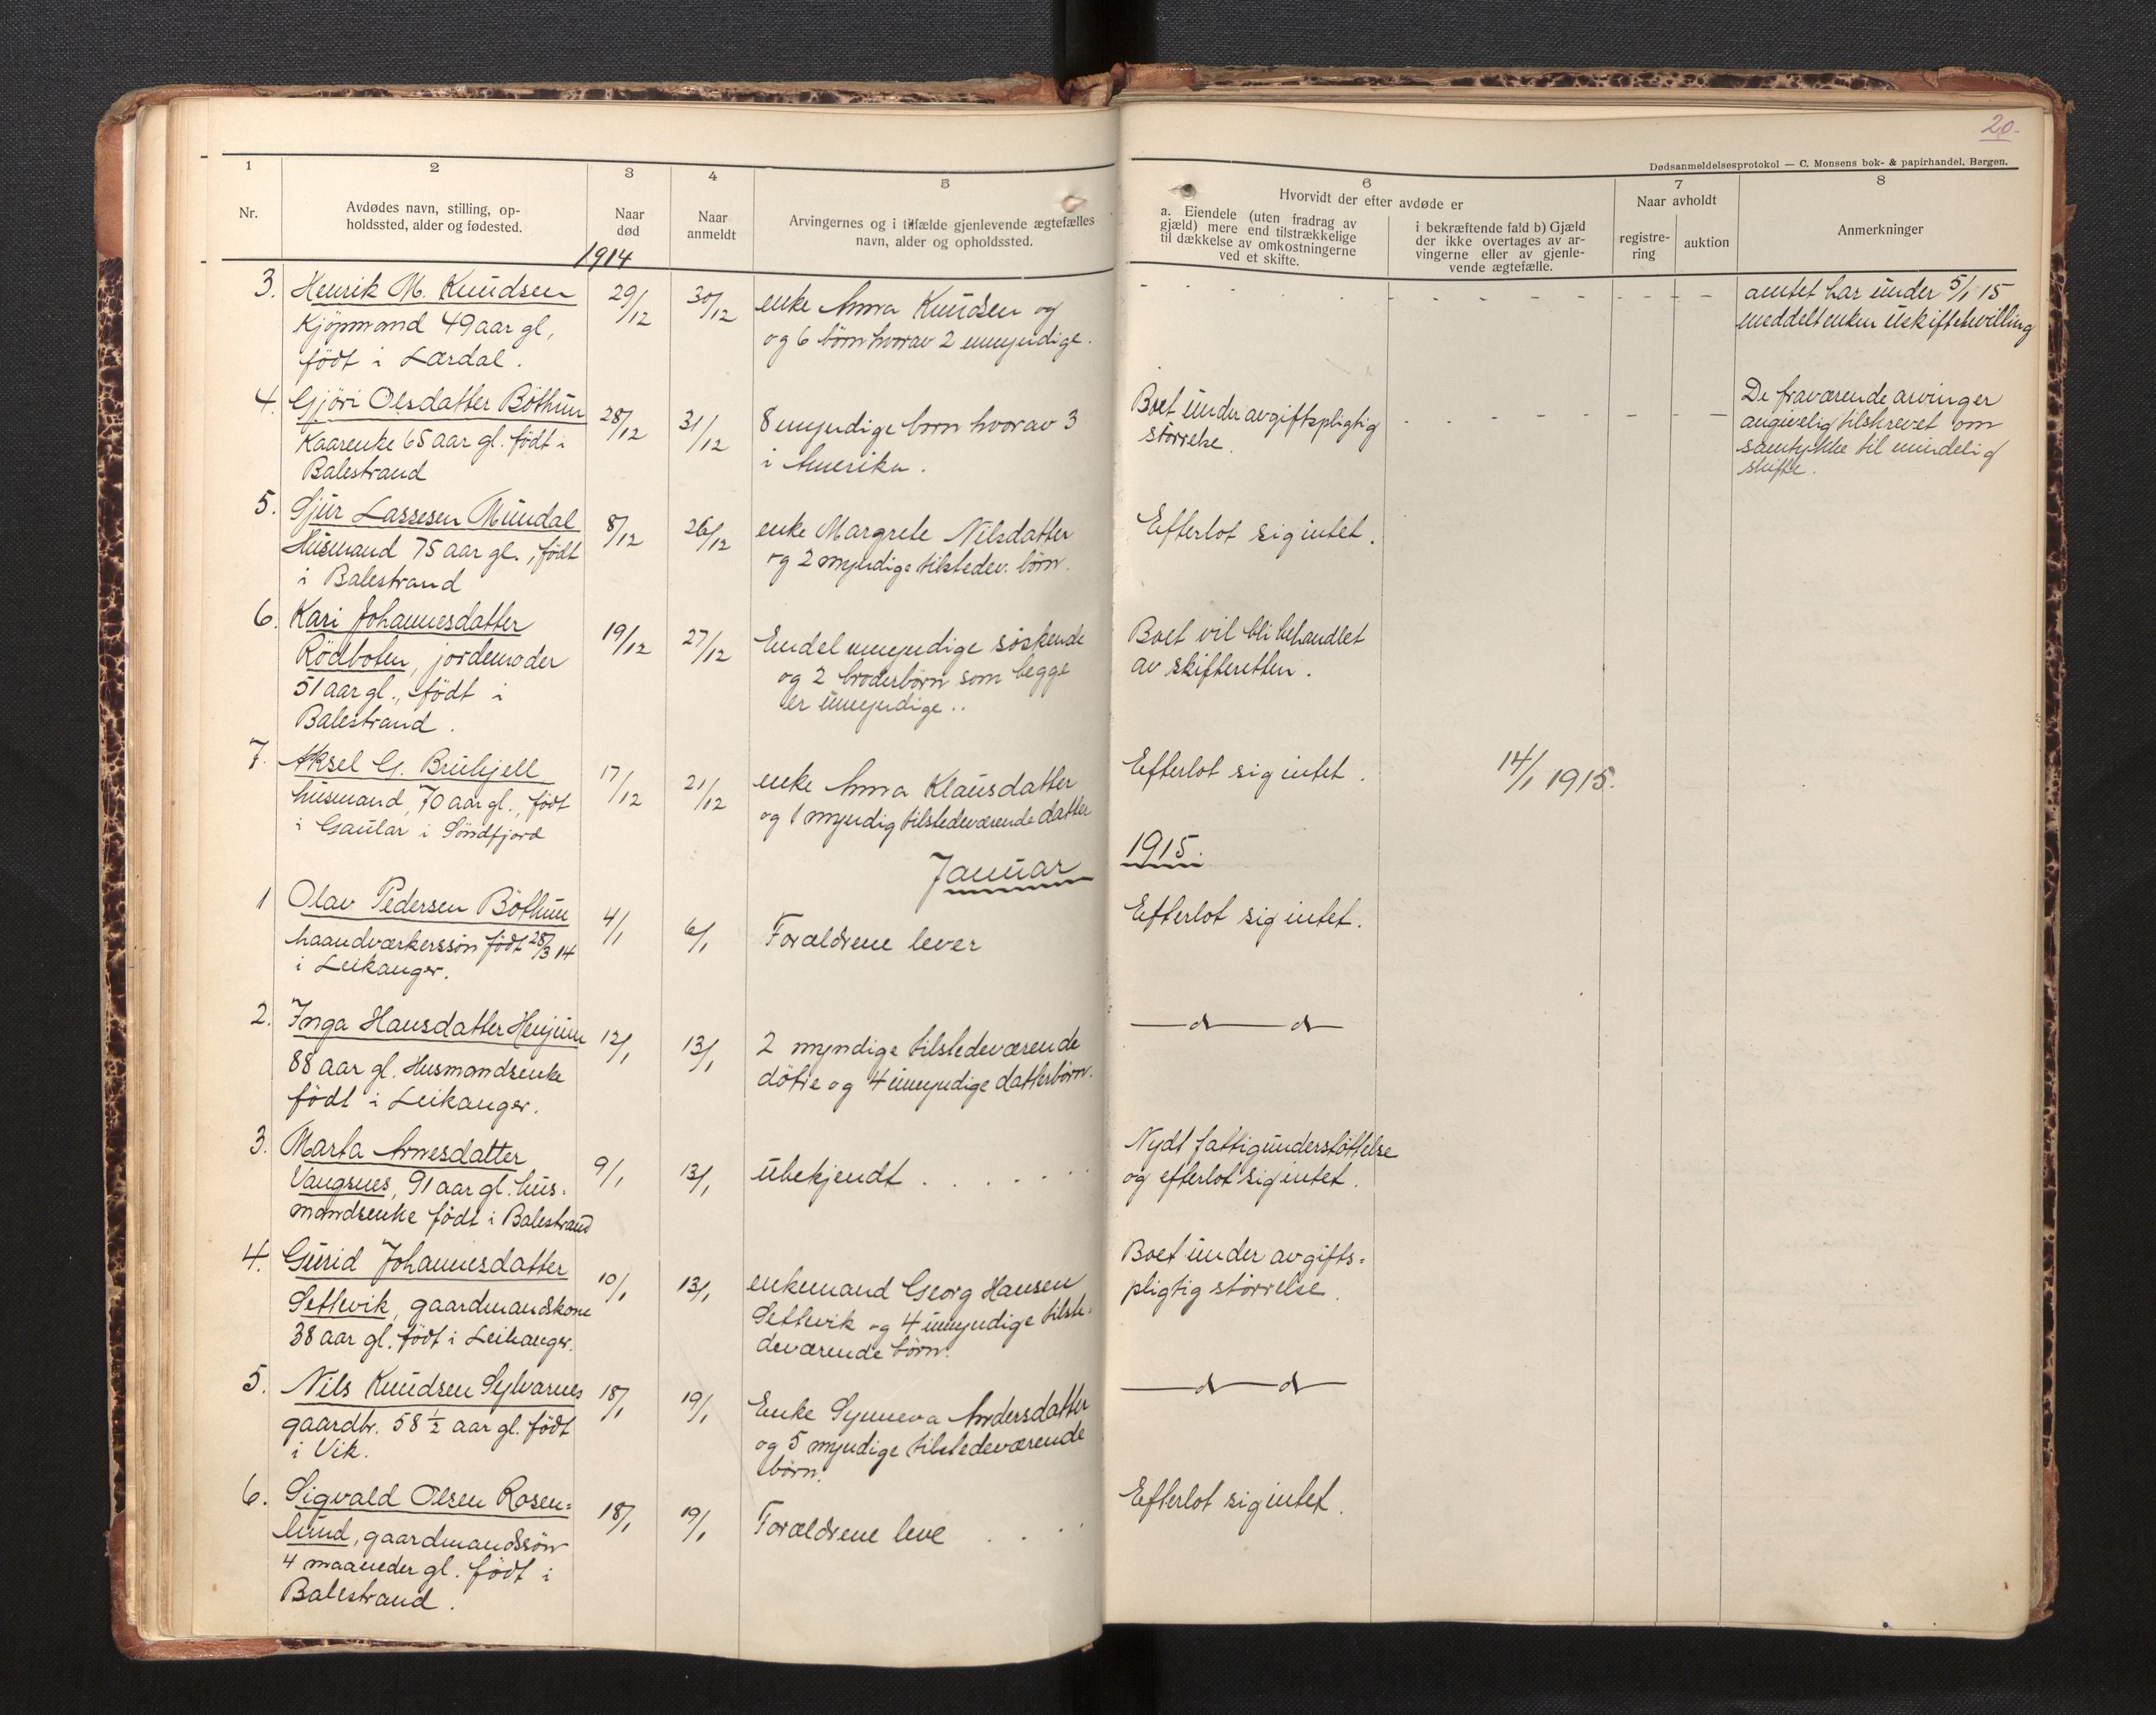 20.
Dødsanmeldelsesprotokol — C. Monsens bok- & papirhandel, Bergen.
1 2 3 4 5 6 7 8
Nr.
Avdødes navn, stilling, op-
holdssted, alder og fødested.
Naar
død
Naar
anmeldt
Arvingernes og i tilfælde gjenlevende ægtefælles
navn, alder og opholdssted.
Hvorvidt der efter avdøde er
a. Eiendele (uten fradrag av
gjæld) mere end tilstrækkelige
til dækkelse av omkostningerne
ved et skifte.
i bekræftende fald b) Gjæld
der ikke overtages av ar-
vingerne eller av gjenle-
vende ægtefælle.
Naar avholdt
registre-
ring
auktion
Anmerkninger
1914
3. Henrik M. Knudsen
Kjöpmand 49 aar gl,
födt i Lærdal.
29/12
30/12
enke Anna Knudsen og
og 6 börn hvorav 2 umyndige.
amtet har under 5/1 15
meddelt enken uskiftetbevilling
4. Gjöri Olsdatter Böthun
Kaarenke 65 aar gl. födt i
Balestrand
28/12
31/12
8 myndige born hvorav 3
i Amerika.
Boet under avgiftspligtig
störrelse.
De fraværende arvinger
angivelig tilskrevet om
samtykke til mindelig
skifte.
5. Sjur Lassesen Mundal
Husmand 75 aar gl., födt
i Balestrand
8/12
26/12
enke Margrete Nilsdatter
og 2 myndige tilstedev. börn.
Efterlot sig intet.
6. Kari Johannesdatter
Rödboten, jordemoder
51 aar gl., födt i
Balestrand.
19/12
27/12
Endel myndige söskende
og 2 broderbörn som begge
er umyndige..
Boet vil bli behandlet
av skifteretten.
7. Aksel G. Bruhjell
husmand, 70 aar gl., födt
i Gaular i Söndfjord
17/12
21/12
enke Anna Klausdatter
og 1 myndig tilstedeværende datter
Efterlot sig intet.
14/1 1915.
Januar 1915.
1 Olav Pedersen Böthun
haandværkerssön födt 28/3 14
i Leikanger.
4/1
6/1
Forældrene lever
Efterlot sig intet.
2. Inga Hansdatter Henjum
88 aar gl. Husmandsenke
födt i Leikanger.
12/1
13/1
2 myndige tilstedeværende
dötre og 4 umyndige datterbörn.
—d—d—
3. Marta Arnesdatter
Vangsnes, 91 aar gl. hus-
mandsenke födt i Balestrand
9/1
13/1
ubekjendt . . . . . .
Nydt fattigunderstöttelse
og efterlot sig intet.
4. Gurid Johannesdatter
Settevik, gaardmandskone
38 aar gl. födt i Leikanger.
10/1
13/1
enkemand Georg Hansen
Settevik og 4 umyndige tilste-
deværende börn.
Boet under avgifts-
pligtig störrelse.
5. Nils Knudsen Sylvarnes
gaardbr. 58 ½ aar gl. födt
i Vik.
18/1
19/1
Enke Synneva Andersdatter
og 5 myndige tilstedeværende
börn.
—d—d—
6. Sigvald Olsen Rosen-
lund, gaardmandssön
4 maaneder gl. födt i
Balestrand.
18/1
19/1
Forældrene leve . . .
Efterlot sig intet.